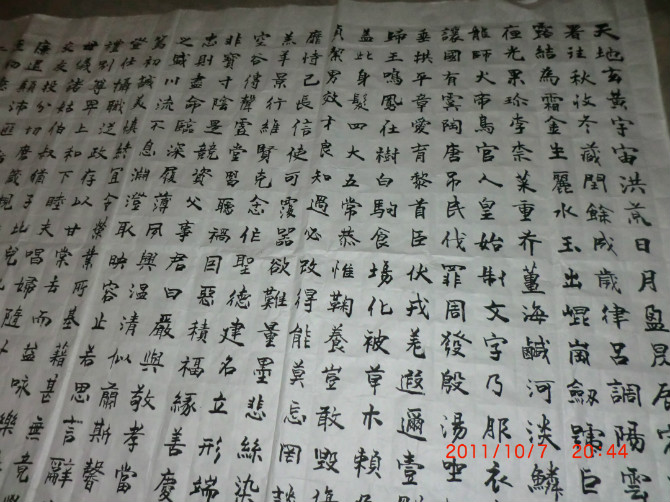 天地玄黃宇宙洪荒日月盈昃辰宿
往秋收冬藏閏餘成歲律呂調陽雲
露結為霜金生麗水玉出崐崗劍號巨
夜光果珍李柰菜重芥薑海鹹河淡鱗
龍師火帝鳥官人皇始制文字乃服衣
讓國有虞陶唐吊民伐罪周發殷湯坐
垂拱平章愛育黎首臣伏戎羌遐邇壹
歸王鳴鳳在樹白駒食場化被草木賴
蓋此身髮四大五常恭惟鞠養豈敢毀
貞絜男效才良知過必改得能莫忘罔談
靡恃己長信使可覆器欲難量墨悲絲染
羔羊景行維賢克念作聖德建名立形端
空谷傳聲虛堂習聽禍因惡積福緣善慶
非寶寸陰是競資父事君曰嚴與敬孝當
忠則盡命臨深履薄夙興溫清似蘭斯馨
之盛川流不息淵澄取映容止若思言辭
篤初誠美慎終宜令榮業所基藉甚無竟
登仕攝職從政存以甘棠去而益詠樂
禮別尊卑上和下睦夫唱婦隨
儀諸姑伯叔猶子比兒
2011/10/7 20:44